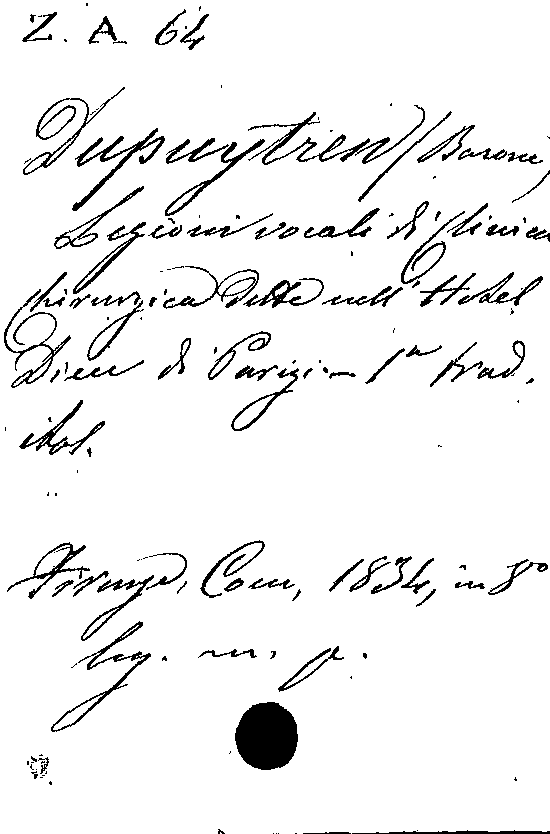 Z. A 64
Dupuytren (Barone)
Lezioni vocali di Clinica
chirurgica dette nell' Hotel
Dieu di Parigi - 1a trad.
ital.
Firenze, Coen, 1834, in 8°
leg. m. p.